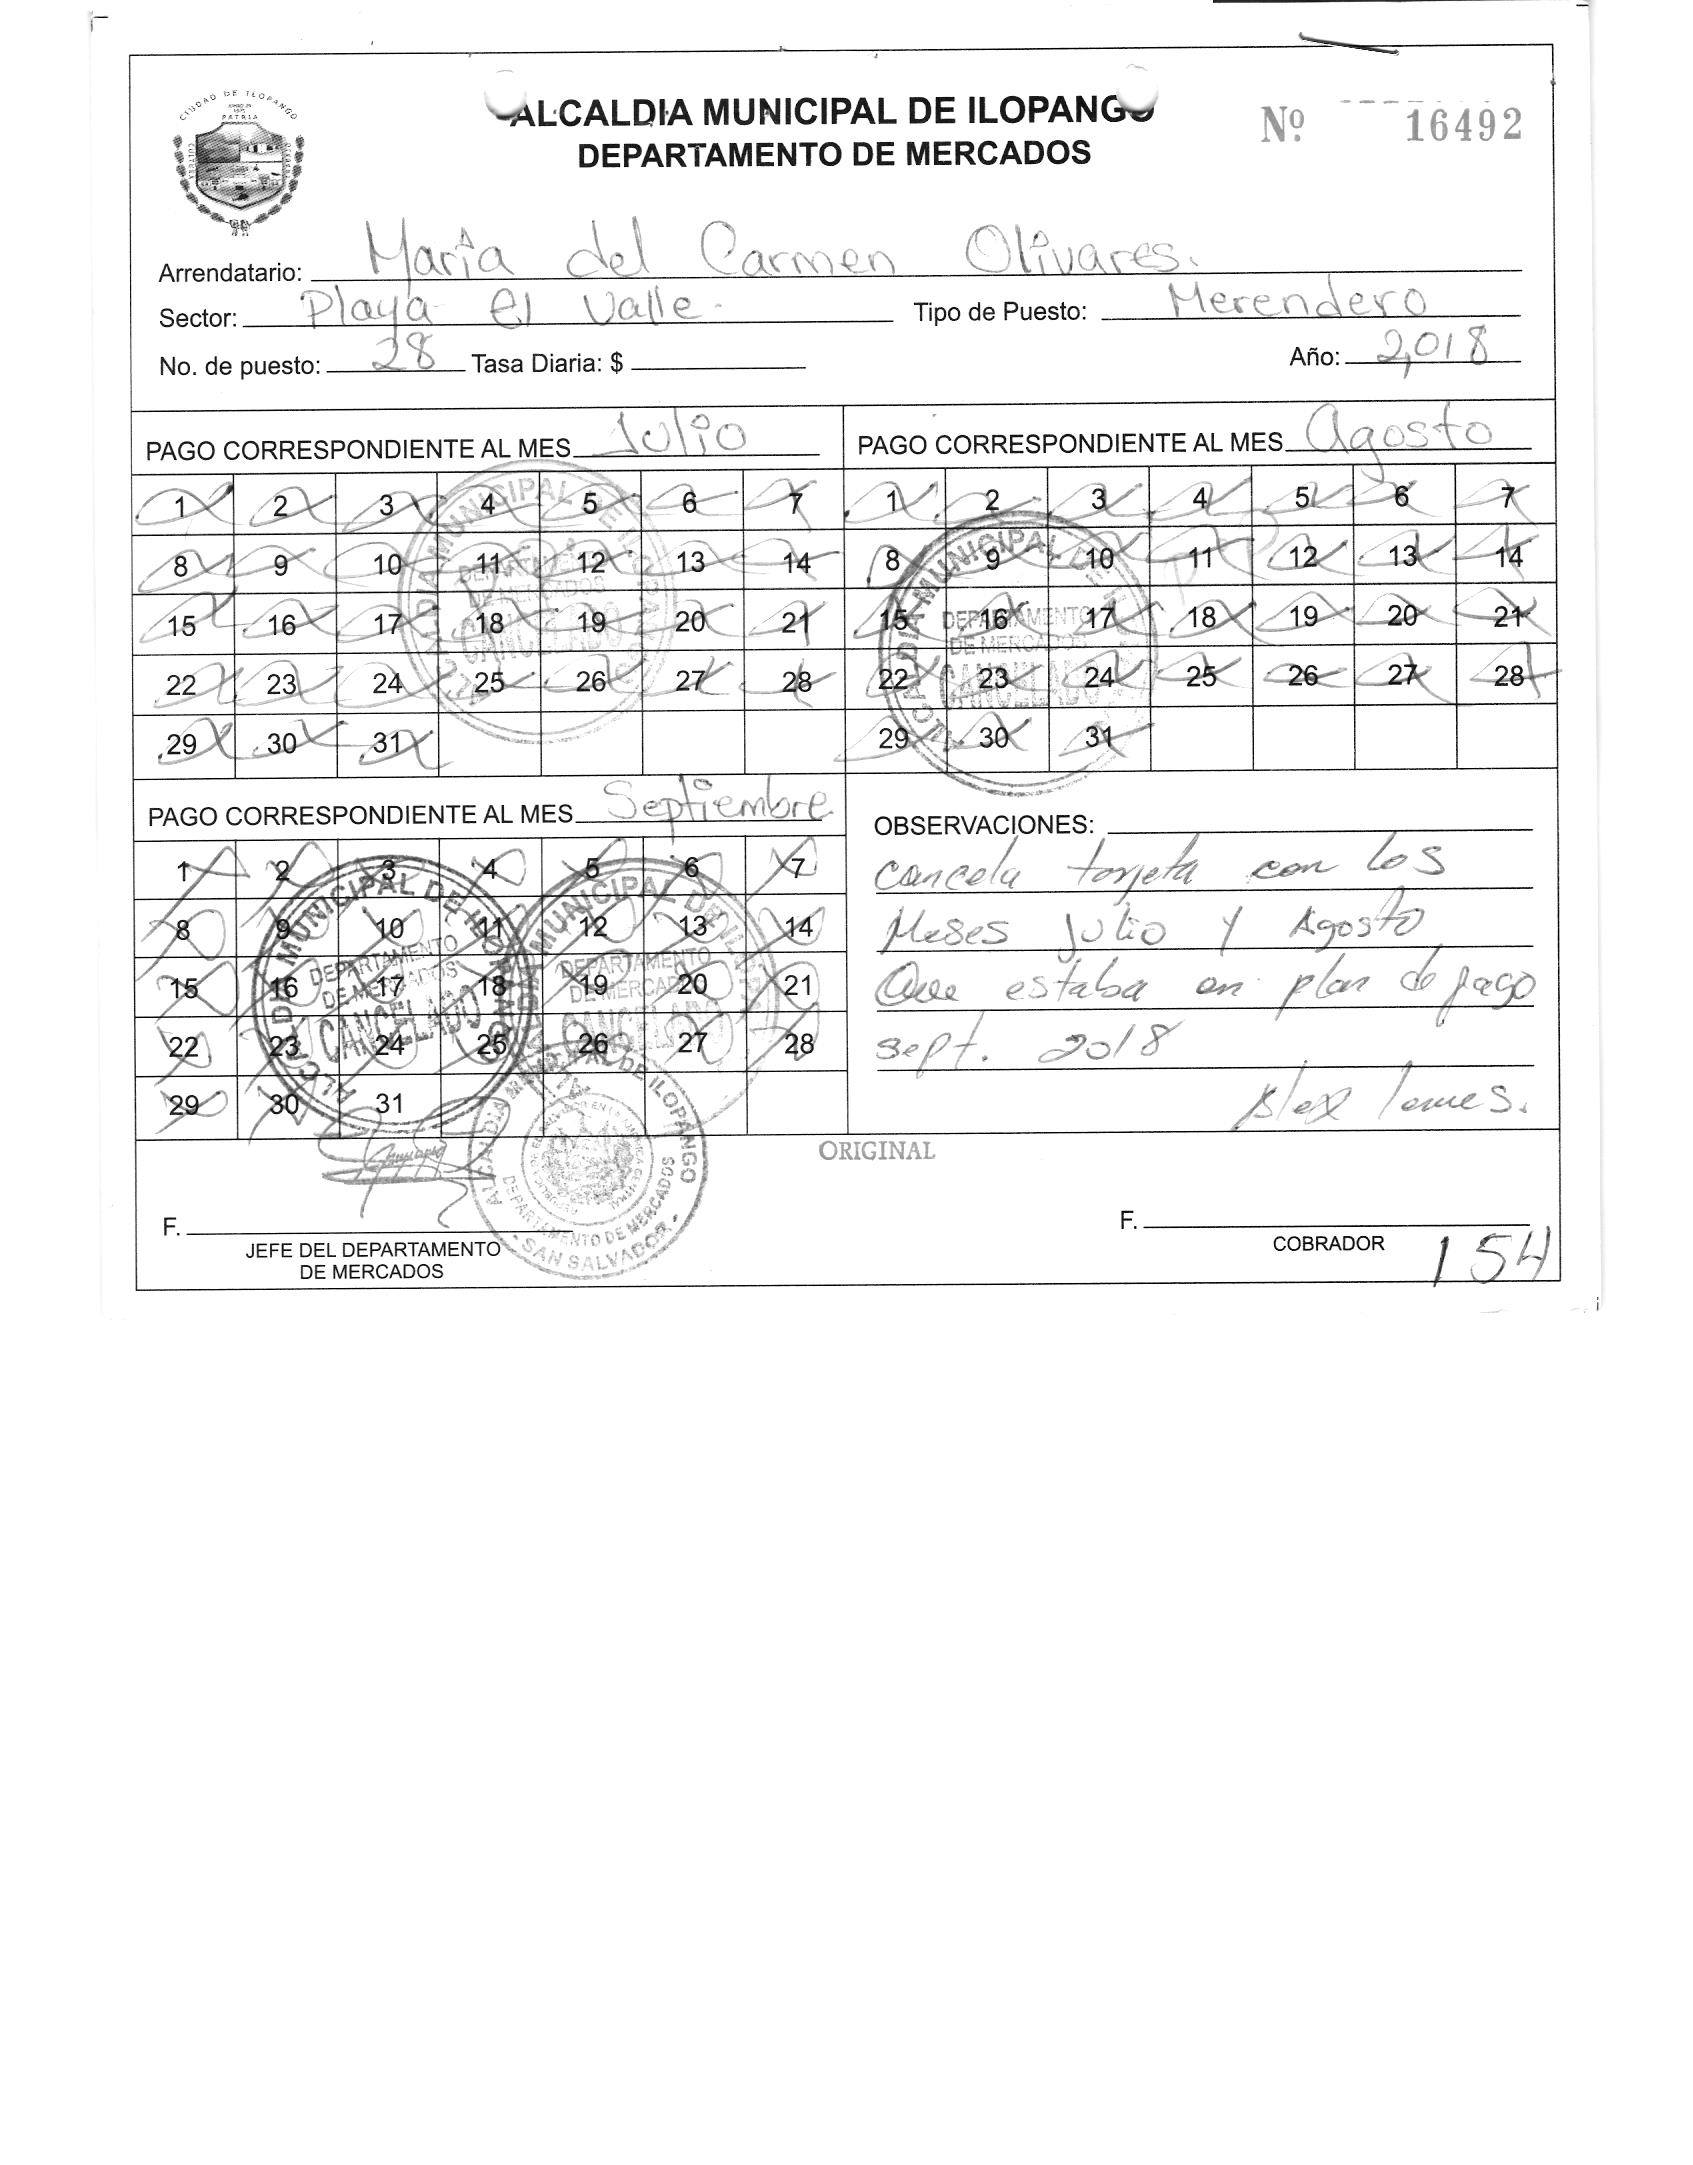 CIUDAD DE ILOPANGO
PATRIA
ALCALDIA MUNICIPAL DE ILOPANGO
DEPARTAMENTO DE MERCADOS
Nº 16492
Arrendatario: María del Carmen Olivares.
Sector: Playa El Valle. Tipo de Puesto: Merendero
No. de puesto: 28 Tasa Diaria: $ Año: 2,018
PAGO CORRESPONDIENTE AL MES Julio
1 2 3 4 5 6 7
8 9 10 11 12 13 14
15 16 17 18 19 20 21
22 23 24 25 26 27 28
29 30 31
ALCALDIA MUNICIPAL DE ILOPANGO
DEPARTAMENTO
DE MERCADOS
CANCELADO
PAGO CORRESPONDIENTE AL MES Agosto
1 2 3 4 5 6 7
8 9 10 11 12 13 14
15 16 17 18 19 20 21
22 23 24 25 26 27 28
29 30 31
ALCALDIA MUNICIPAL DE
DEPARTAMENTO
DE MERCADOS
CANCELADO
PAGO CORRESPONDIENTE AL MES Septiembre
1 2 3 4 5 6 7
8 9 10 11 12 13 14
15 16 17 18 19 20 21
22 23 24 25 26 27 28
29 30 31
ALCALDIA MUNICIPAL DE ILOPANGO
DEPARTAMENTO
DE MERCADOS
CANCELADO
MUNICIPAL DE
DEPARTAMENTO
DE MERCADOS
CANCELADO
OBSERVACIONES:
Cancela tarjeta con los
Meses Julio y Agosto
Que estaba en plan de pago
sept. 2018
Alex
ORIGINAL
ALCALDIA MUNICIPAL DE ILOPANGO
DEPARTAMENTO DE MERCADOS
SAN SALVADOR
F.
JEFE DEL DEPARTAMENTO
DE MERCADOS
F.
COBRADOR
154